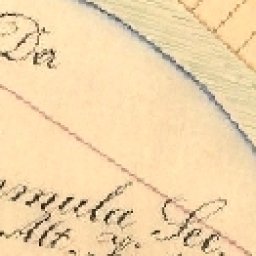 Der
mula See
Alt